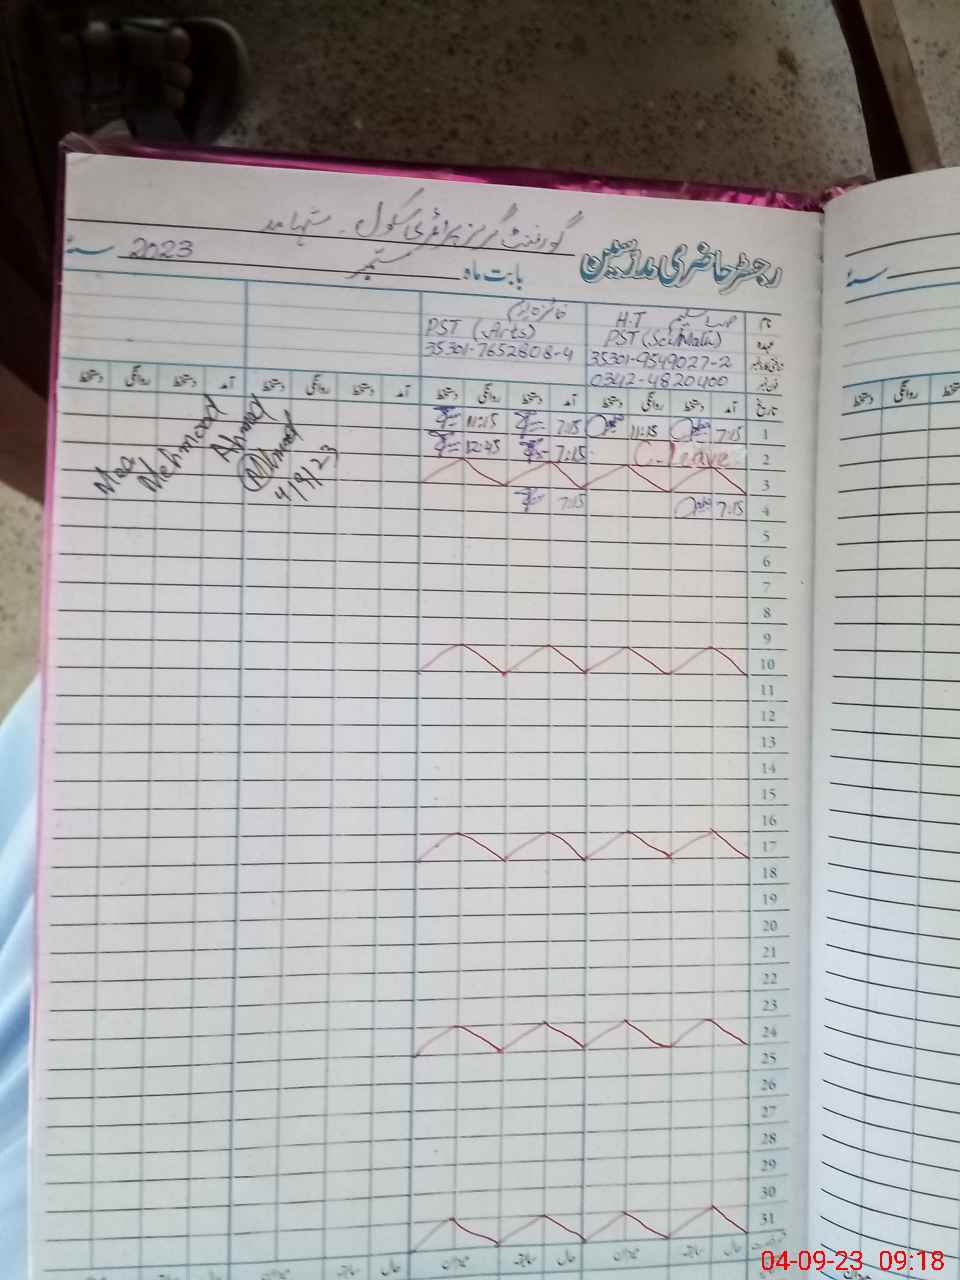 گورنمنٹ گرلز پرائمری سکول۔
رجسٹر حاضری مدرسین
بابت ماہ ستمبر
سنہ 2023
سنہ
نام
H.T
PST (Sci/Math)
35301-9549027-2
0342-4820400
PST (Arts)
35301-7652808-4
تاریخ آمد دستخط روانگی دستخط آمد دستخط روانگی دستخط آمد دستخط روانگی دستخط آمد دستخط روانگی دستخط
1 7:15 11:15 7:15 11:15
2 C. Leave 7:15 12:45
3
4 7:15 7:15
5
6
7
8
9
10
11
12
13
14
15
16
17
18
19
20
21
22
23
24
25
26
27
28
29
30
31
Mehmood
Ahmad
4/9/23
حال سابقہ میزان حال سابقہ میزان حال سابقہ میزان حال سابقہ میزان
04-09-23 09:18